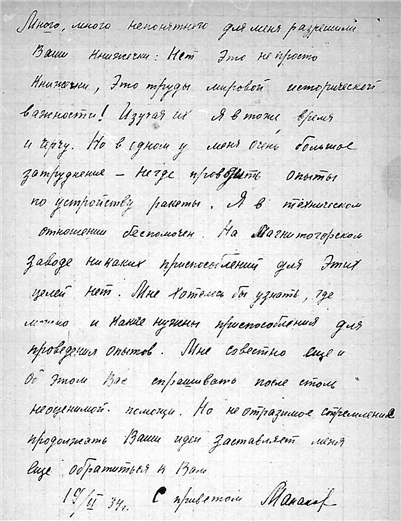 Много, много непонятного для меня разрешили
Ваши книжечки: Нет это не просто
книжечки, это труды мировой исторической
важности! Изучая их я в тоже время
и учу. Но в одном у меня очень большое
затруднение – негде проводить опыты
по устройству ракеты. Я в техническом
отношении беспомочен. На Магнитогорском
заводе никаких приспособлений для этих
целей нет. Мне хотелось бы узнать, где
можно и какие нужны приспособления для
проведения опытов. Мне совестно еще и
об этом Вас спрашивать после стольк
неоценимой помощи. Но неотразимое стремление
продолжать Ваши идеи заставляет меня
еще обратиться к Вам
19/II 34г. С приветом